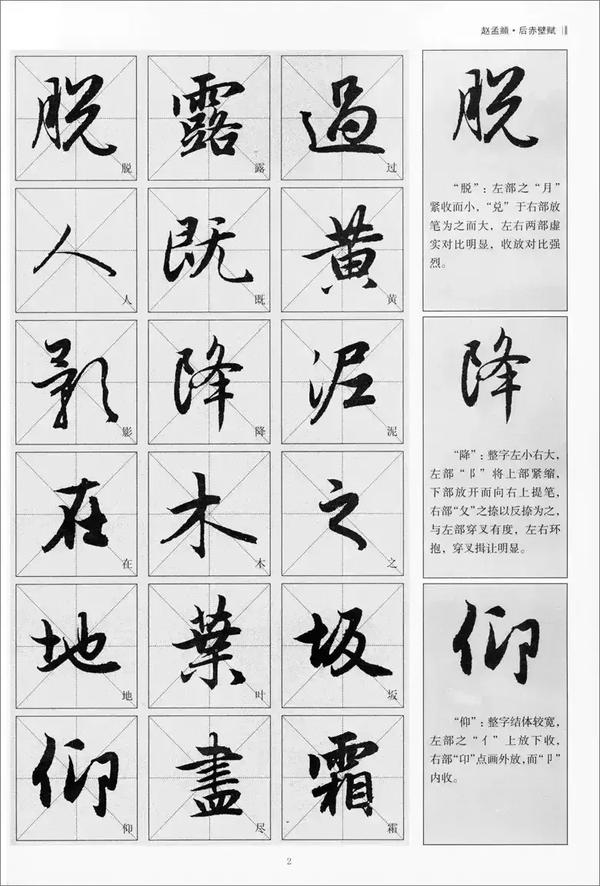 赵孟頫·后赤壁赋
過黃泥之坂霜
过黄泥之坂霜
露既降木葉盡
露既降木叶尽
脱人影在地仰
脱人影在地仰
脱
“脱”：左部之“月”
紧收而小，“兑”于右部放
笔为之而大，左右两部虚
实对比明显，收放对比强
烈。
降
“降”：整字左小右大，
左部“阝”将上部紧缩，
下部放开而向右上提笔，
右部“夂”之捺以反捺为之，
与左部穿叉有度，左右环
抱，穿叉揖让明显。
仰
“仰”：整字结体较宽，
左部之“亻”上放下收，
右部“卬”点画外放，而“卩”
内收。
2